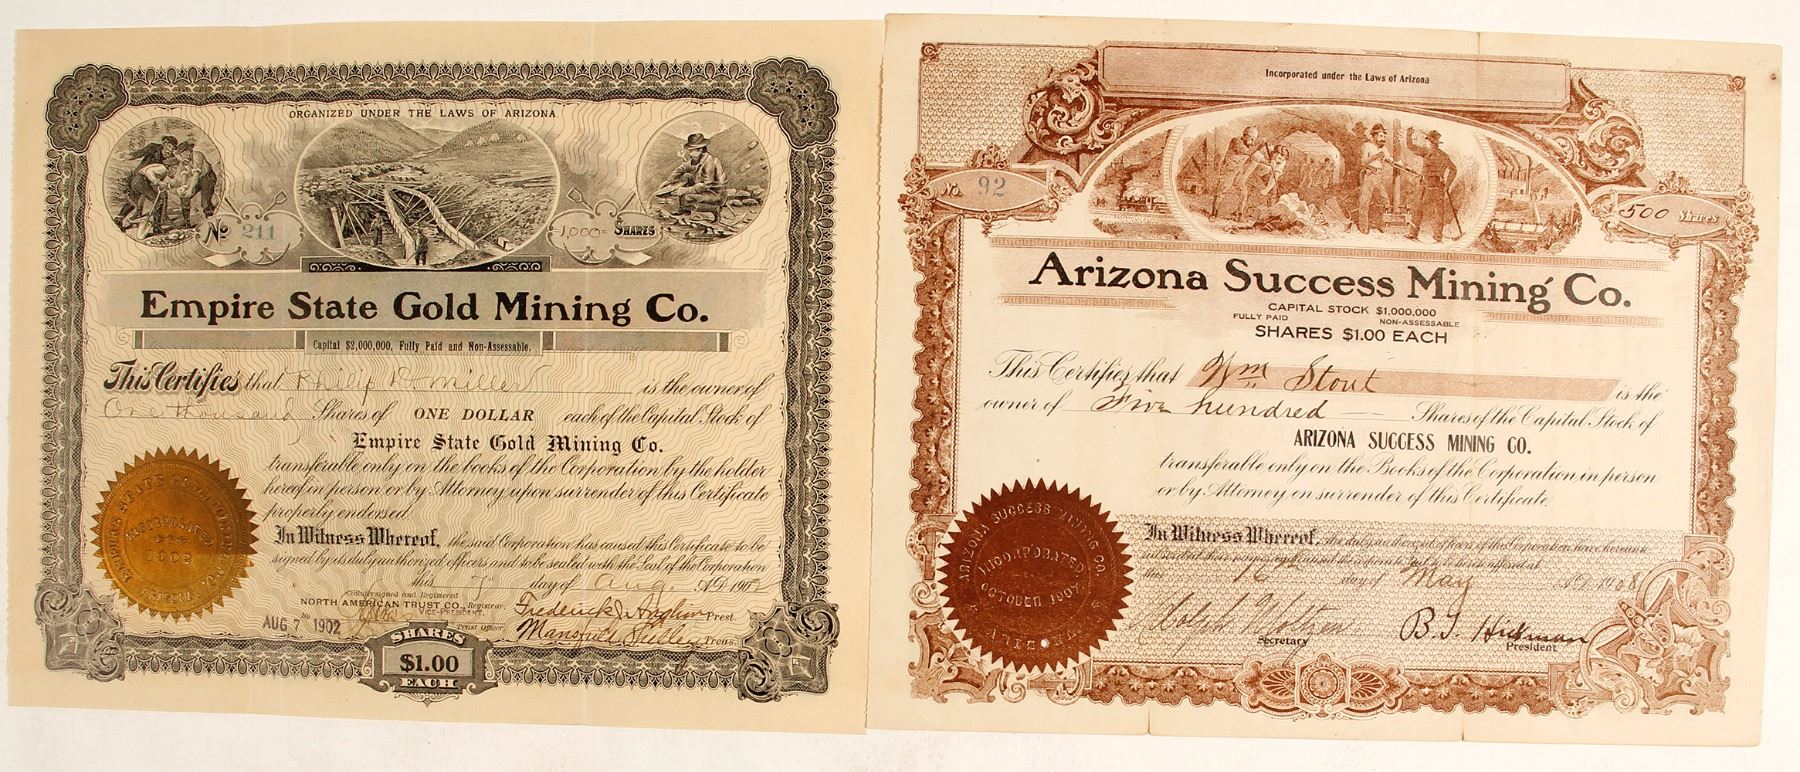 ORGANIZED UNDER THE LAWS OF ARIZONA
No 211
1,000 SHARES
Empire State Gold Mining Co.
Capital $2,000,000, Fully Paid and Non-Assessable.
This Certifies that Philip D Miller is the owner of
One thousand Shares of ONE DOLLAR each of the Capital Stock of
Empire State Gold Mining Co.
transferable only on the books of the Corporation by the holder
hereof in person or by Attorney upon surrender of this Certificate
properly endorsed.
In Witness Whereof, the said Corporation has caused this Certificate to be
signed by its duly authorized officers and to be sealed with the Seal of the Corporation
this 7th day of Aug A.D. 1902
Countersigned and Registered
NORTH AMERICAN TRUST CO., Registrar,
VICE-PRESIDENT.
AUG 7 1902
Trust Officer.
Frederick Prest.
Mansfield Treas.
SHARES
$1.00
EACH
EMPIRE STATE GOLD MINING CO.
INCORPORATED
ARIZONA
Incorporated under the Laws of Arizona
No. 92
500 Shares
Arizona Success Mining Co.
CAPITAL STOCK $1,000,000
FULLY PAID NON-ASSESSABLE
SHARES $1.00 EACH
This Certifies that Wm Stout is the
owner of Five hundred Shares of the Capital Stock of
ARIZONA SUCCESS MINING CO.
transferable only on the Books of the Corporation in person
or by Attorney on surrender of this Certificate.
In Witness Whereof, the duly authorized officers of this Corporation have hereunto
this 16 day of May A.D. 1908
Secretary
B. J. Hickman
President
ARIZONA SUCCESS MINING CO.
INCORPORATED
OCTOBER 1907